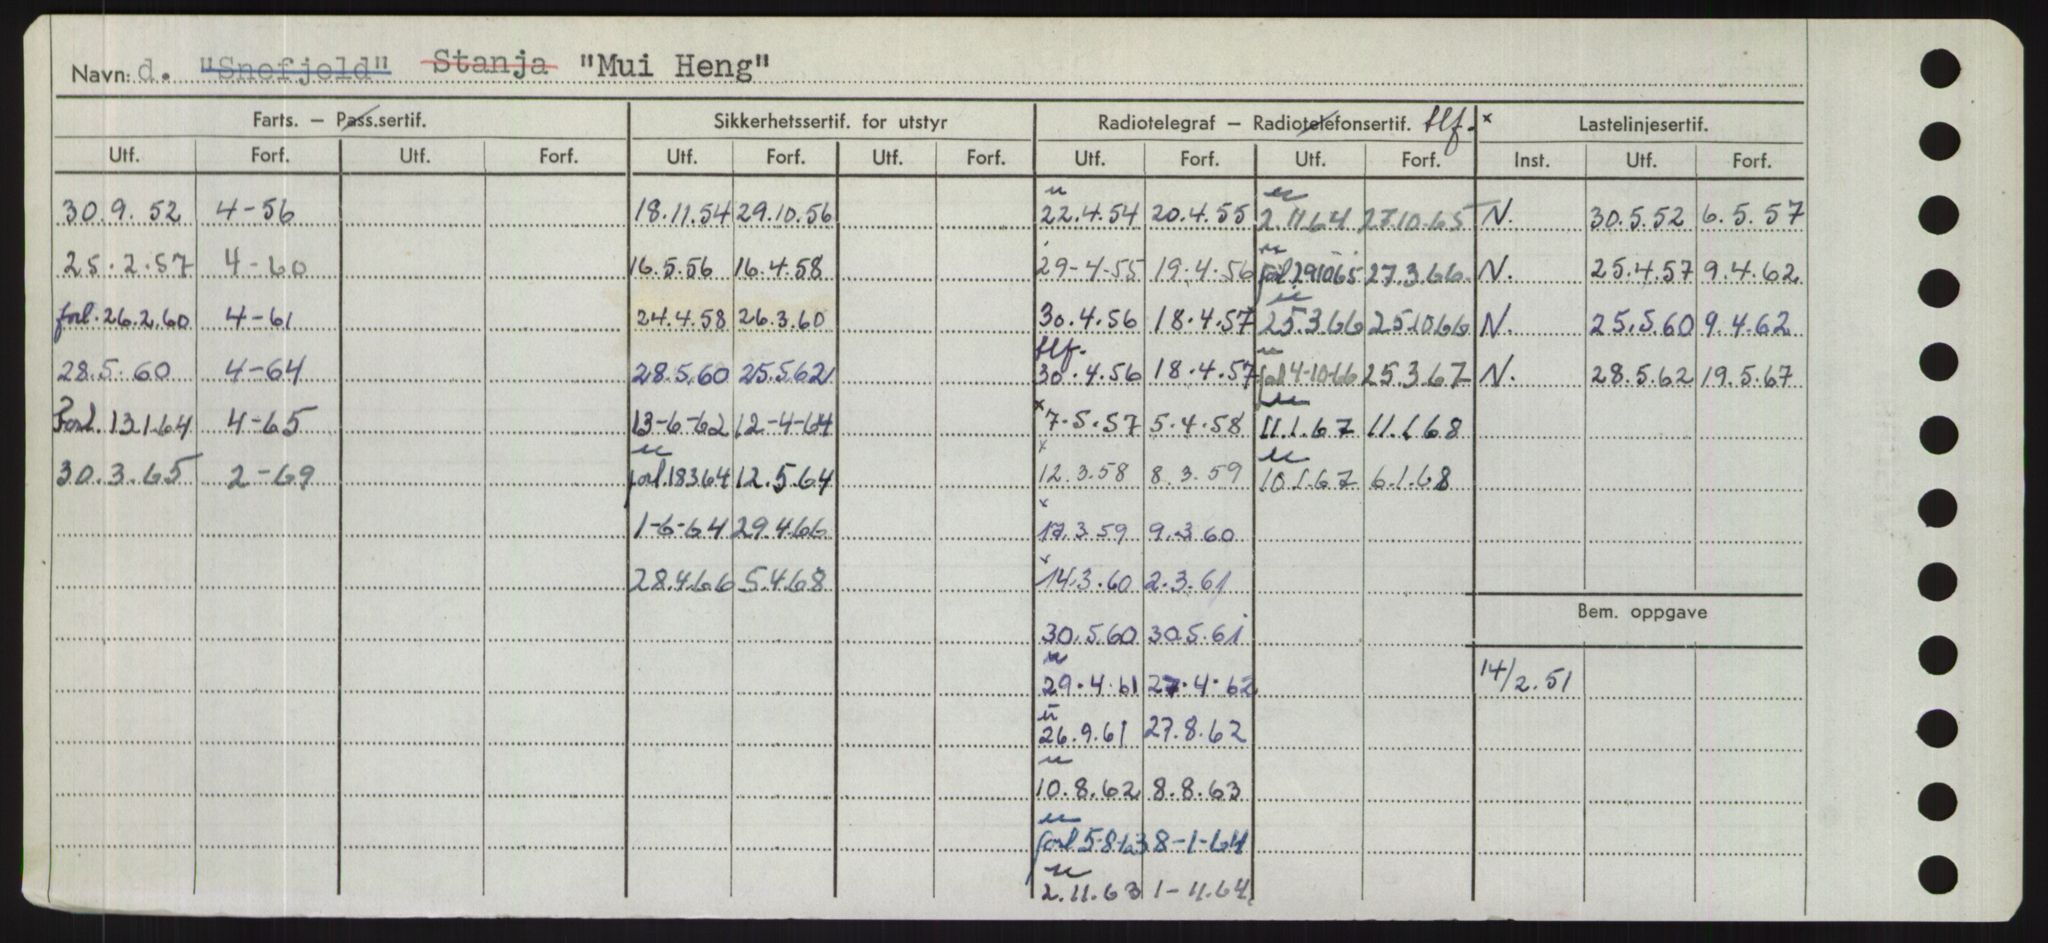 Navn: d. "Snefjeld" Stanja "Mui Heng"
Farts. — Pass.sertif. Sikkerhetssertif. for utstyr Radiotelegraf — Radiotelefonsertif. tlf. x Lastelinjesertif.
Utf. Forf. Utf. Forf. Utf. Forf. Utf. Forf. Utf. Forf. Utf. Forf. Inst. Utf. Forf.
30.9.52 4-56 18.11.54 29.10.56 u 22.4.54 20.4.55 u 2.11.64 27.10.65 N. 30.5.52 6.5.57
25.2.57 4-60 16.5.56 16.4.58 29-4-55 19.4.56 u forl 29.10.65 27.3.66 N. 25.4.57 9.4.62
forl. 26.2.60 4-61 24.4.58 26.3.60 30.4.56 18.4.57 u 25.3.66 25.10.66 N. 25.5.60 9.4.62
28.5.60 4-64 28.5.60 25.5.62 tlf. 30.4.56 18.4.57 u forl 4-10-66 25.3.67 N. 28.5.62 19.5.67
Forl. 13.1.64 4-65 13-6-62 12-4-64 x 7-5.57 5.4.58 u 11.1.67 11.1.68
30.3.65 2-69 u forl. 18.3.64 12.5.64 x 12.3.58 8.3.59 u 10.1.67 6.1.68
1-6-64 29.4.66 x 12.3.59 9.3.60
28.4.66 5.4.68 x 14.3.60 2.3.61
Bem. oppgave
30.5.60 30.5.61
u 29.4.61 27.4.62 14/2.51
u 26.9.61 27.8.62
u 10.8.62 8.8.63
u forl 5-8-63 8-1-64
u 2.11.63 1-11.64